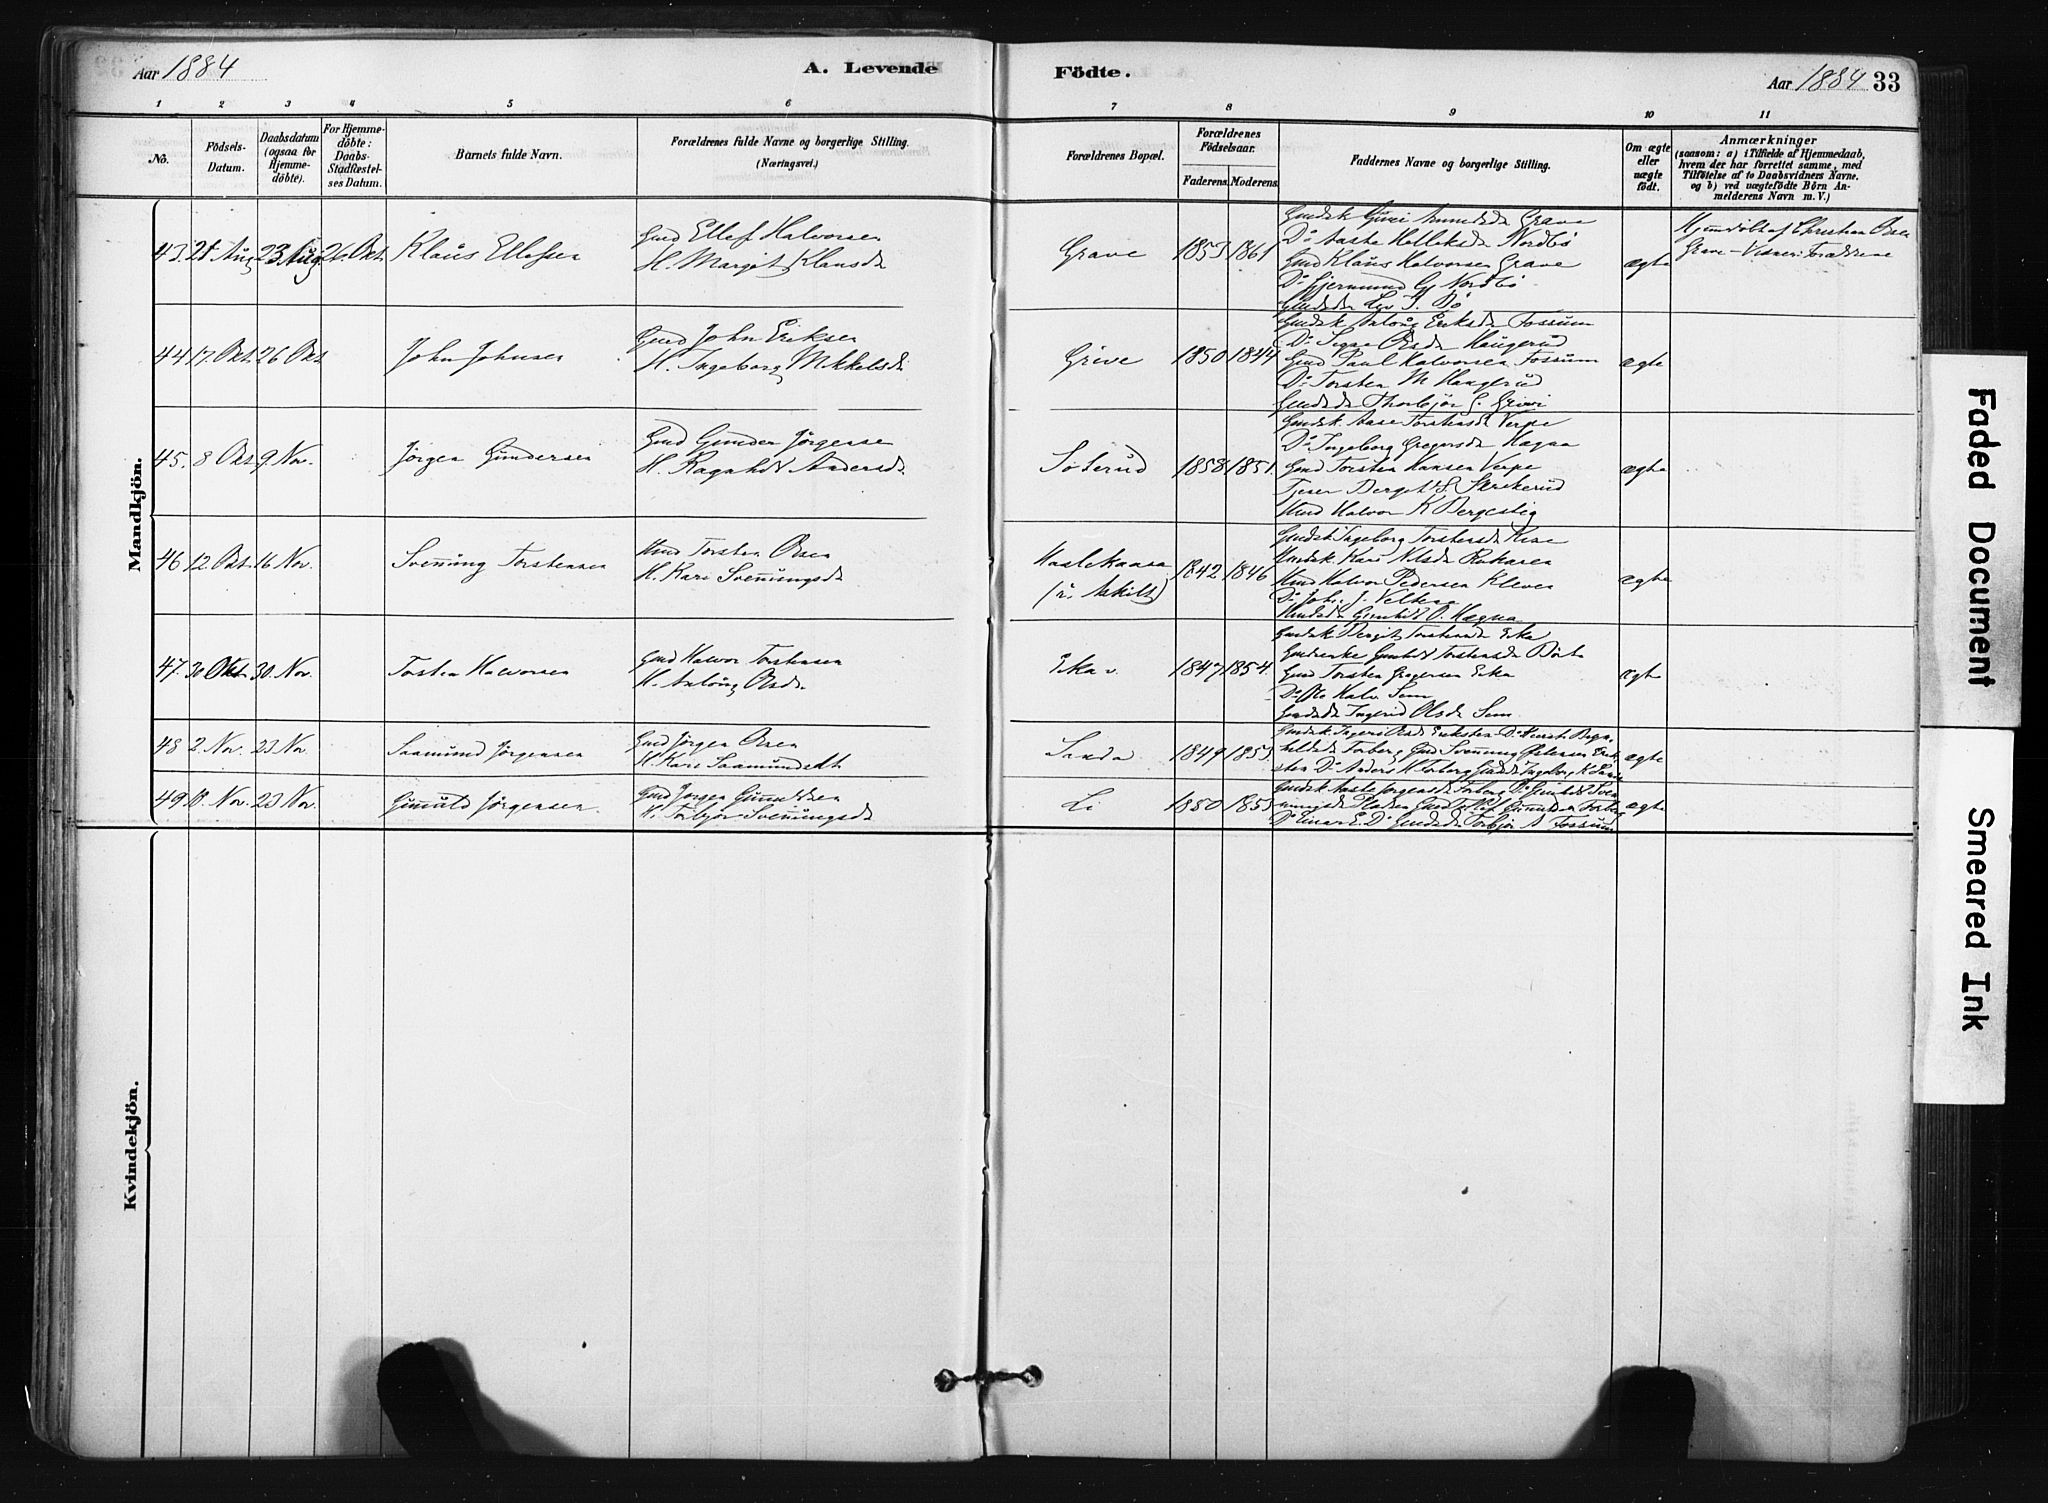 Aar 1884
A. Levende
Födte.
Aar 1884
33
1 2 3 4 5 6 7 8 9 10 11
No.
Födsels-
Datum.
Daabsdatum
(ogsaa for
Hjemme-
döbte).
For Hjemme-
döbte:
Daabs-
Stadfæstel-
ses Datum.
Barnets fulde Navn.
Forældrenes fulde Navne og borgerlige Stilling.
(Næringsvei.)
Forældrenes Bopæl.
Forældrenes
Födselsaar.
Faderens. Moderens.
Faddernes Navne og borgerlige Stilling.
Om ægte
eller
uægte
födt.
Anmærkninger
(saasom: a) i Tilfælde af Hjemmedaab,
hvem der har forrettet samme, med
Tilföielse af to Daabsvidners Navne,
og b) ved uægtefödte Börn An-
melderens Navn m. V.)
Mandkjön.
43. 21 Aug 23 Aug 26 Okt. Klaus Ellefsen
Gmd Ellef Halvorsen
H. Margit Klausd.
Grave 1853 1861
Gmdsk Guri Amundsd. Grave
Do Aaste Halleksd. Nordbö
Gmd Klaus Halvorsen Grave
Do Gjermund G. Nordbö
Bö
ægte
Hjemdöbt af Christian Olsen
Grave - Vidner: Forældrene
44 17. Okt. 26 Okt John Johnsen
Gmd John Eriksen
H. Ingeborg Mikkelsd.
Grive 1850 1844
Gmdsk Anlaug Eriksd. Fossum
Do Signe Olsd. Haugerud
Gmd Paul Halvorsen Fossum
Do Torsten M. Haugerud
Thorbjör G. Grivi
ægte
45. 8 Okt. 9 Nov. Jörgen Gundersen
Gmd Gunder Jörgensen
H. Ragnhild Andersd.
Söterud 1858 1851.
Gmdsk Aase Torstensd. Verpe
Do Ingeborg Gregersd. Hægna
Gmd Torsten Hansen Verpe
Halvor K. Bergestig
ægte
46 12. Okt. 16 Nov. Svenung Torstensen
Hmd Torsten Olsen
H. Kari Svenungsd.
Haslekaasa 1842 1846
Gmdsk Ingeborg Torstensd.
Hmdsk Kari Nilsd. Rokasen
Hmd Halvor Pedersen Kleven
Gunhild O. Hægna
ægte
47. 30 Okt. 30. Nov. Torsten Halvorsen
Gmd Halvor Torstensen
H. Anlaug Olsd.
Eka 1847 1854.
Gmdsk Bergit Torstensd. Eka
Gunhild Torstensd.
Gmd Torsten Gregersen Eika
Do Ole Halv. Sem
Ingerid Olsd. Sem
ægte
48 2. Nov. 23 Nov. Saamund Jörgensen
Gmd Jörgen Olsen
H. Kari Saamundsdt.
Sanda 1849 1853.
ægte
49 10. Nov. 23 Nov. Gunuld Jörgensen
Gmd Jörgen Gunuldsen
H. Torbjör Svenungsd.
Li 1850 1853
Do Einar E. Do Torbjör A. Fossum
ægte
Kvindekjön.
Faded Document
Smeared Ink